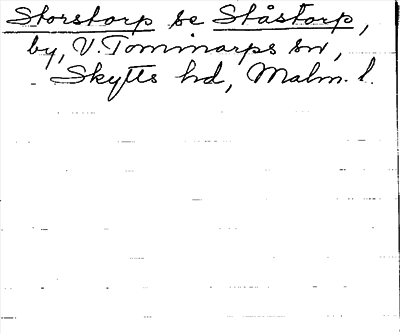 Storstorp se Ståstorp,
by, V. Tommarps sn,
Skytts hd, Malm. l.